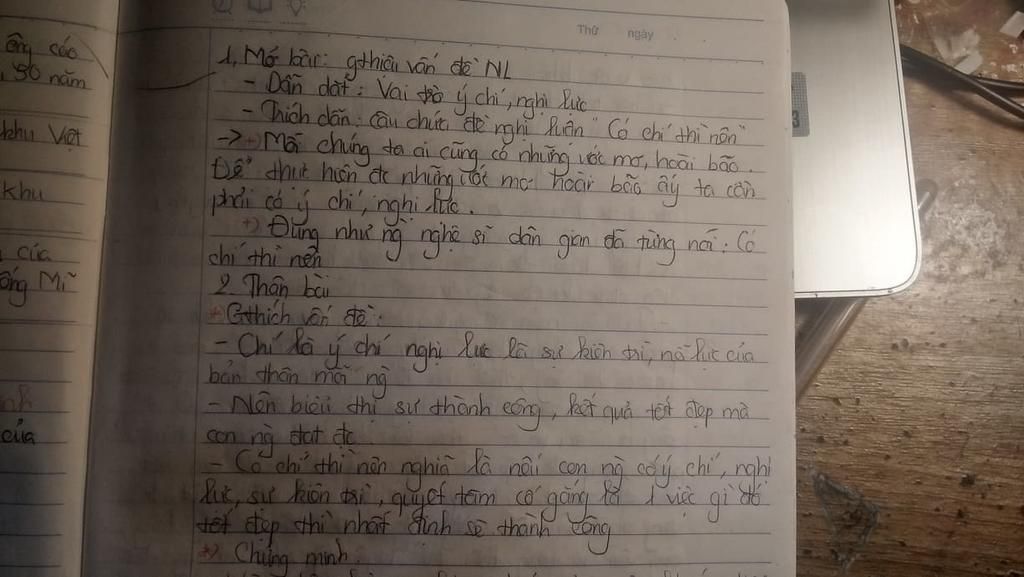 Thứ ngày
ông cáo
50 năm
khu Việt
khu
của
ống Mĩ
của
1, Mở bài: gthiệu vấn đề NL
- Dẫn dắt: Vai trò ý chí, nghị lực
- Trích dẫn: câu chứa đề nghị luận "Có chí thì nên"
-> +) Mỗi chúng ta ai cũng có những ước mơ, hoài bão.
Để thực hiện đc những ước mơ hoài bão ấy ta cần
phải có ý chí, nghị lực.
+) Đúng như ng nghệ sĩ dân gian đã từng nói: Có
chí thì nên
2 Thân bài
* Gthích vấn đề:
- Chí là ý chí nghị lực là sự kiên trì, nỗ lực của
bản thân mỗi ng
- Nên biểu thị sự thành công, kết quả tốt đẹp mà
con ng đạt đc
- Có chí thì nên nghĩa là nói con ng có ý chí, nghị
lực, sự kiên trì, quyết tâm cố gắng là 1 việc gì đó
tốt đẹp thì nhất định sẽ thành công
*) Chứng minh